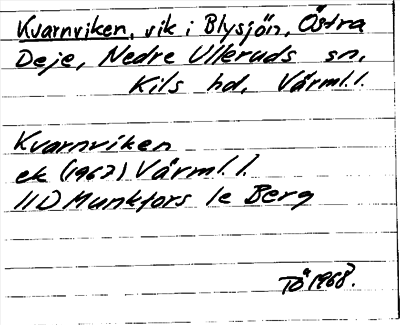 Kvarnviken, vik i Blysjön, Östra
Deje, Nedre Ulleruds sn,
Kils hd, Värml. l.
Kvarnviken
ek (1967) Värml. l.
11D Munkfors 1e Berg
TÅ 1968.